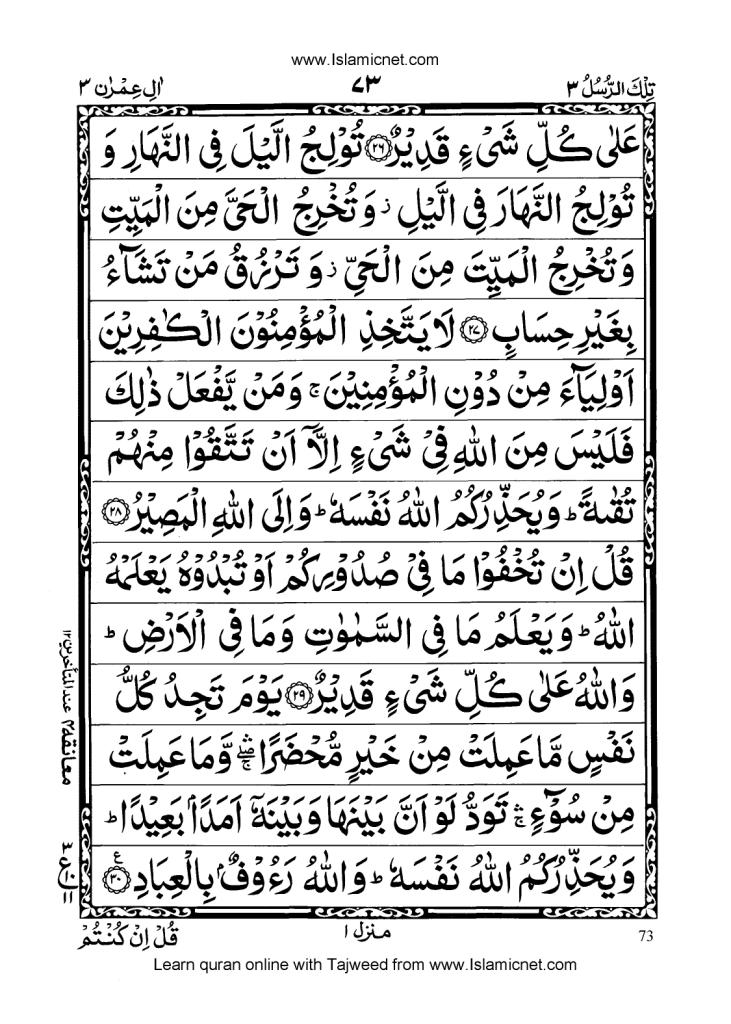 www.Islamicnet.com
تِلْكَ الرُّسُلُ ٣
٧٣
اٰلِ عِمْرٰن ٣
عَلٰى كُلِّ شَىْءٍ قَدِيْرٌ ۝٢٦ تُوْلِجُ الَّيْلَ فِى النَّهَارِ وَ
تُوْلِجُ النَّهَارَ فِى الَّيْلِ ز وَتُخْرِجُ الْحَىَّ مِنَ الْمَيِّتِ
وَتُخْرِجُ الْمَيِّتَ مِنَ الْحَىِّ ز وَ تَرْزُقُ مَنْ تَشَآءُ
بِغَيْرِ حِسَابٍ ۝٢٧ لَا يَتَّخِذِ الْمُؤْمِنُوْنَ الْكٰفِرِيْنَ
اَوْلِيَآءَ مِنْ دُوْنِ الْمُؤْمِنِيْنَ ۚ وَمَنْ يَّفْعَلْ ذٰلِكَ
فَلَيْسَ مِنَ اللّٰهِ فِىْ شَىْءٍ اِلَّاۤ اَنْ تَتَّقُوْا مِنْهُمْ
تُقٰىةً ؕ وَيُحَذِّرُكُمُ اللّٰهُ نَفْسَهٗ ؕ وَاِلَى اللّٰهِ الْمَصِيْرُ ۝٢٨
قُلْ اِنْ تُخْفُوْا مَا فِىْ صُدُوْرِكُمْ اَوْ تُبْدُوْهُ يَعْلَمْهُ
اللّٰهُ ؕ وَيَعْلَمُ مَا فِى السَّمٰوٰتِ وَمَا فِى الْاَرْضِ ؕ
وَاللّٰهُ عَلٰى كُلِّ شَىْءٍ قَدِيْرٌ ۝٢٩ يَوْمَ تَجِدُ كُلُّ
نَفْسٍ مَّا عَمِلَتْ مِنْ خَيْرٍ مُّحْضَرًا ۛۖۚ وَّمَا عَمِلَتْ
مِنْ سُوْٓءٍ ۛۚ تَوَدُّ لَوْ اَنَّ بَيْنَهَا وَبَيْنَهٗۤ اَمَدًاۢ بَعِيْدًا ؕ
وَيُحَذِّرُكُمُ اللّٰهُ نَفْسَهٗ ؕ وَاللّٰهُ رَءُوْفٌۢ بِالْعِبَادِ ۝٣٠ ع
معانقة ٢ عند المتأخرين ١٢
٣
ع ١٠
١١
قُلْ اِنْ كُنْتُمْ
منزل ١
73
Learn quran online with Tajweed from www.Islamicnet.com